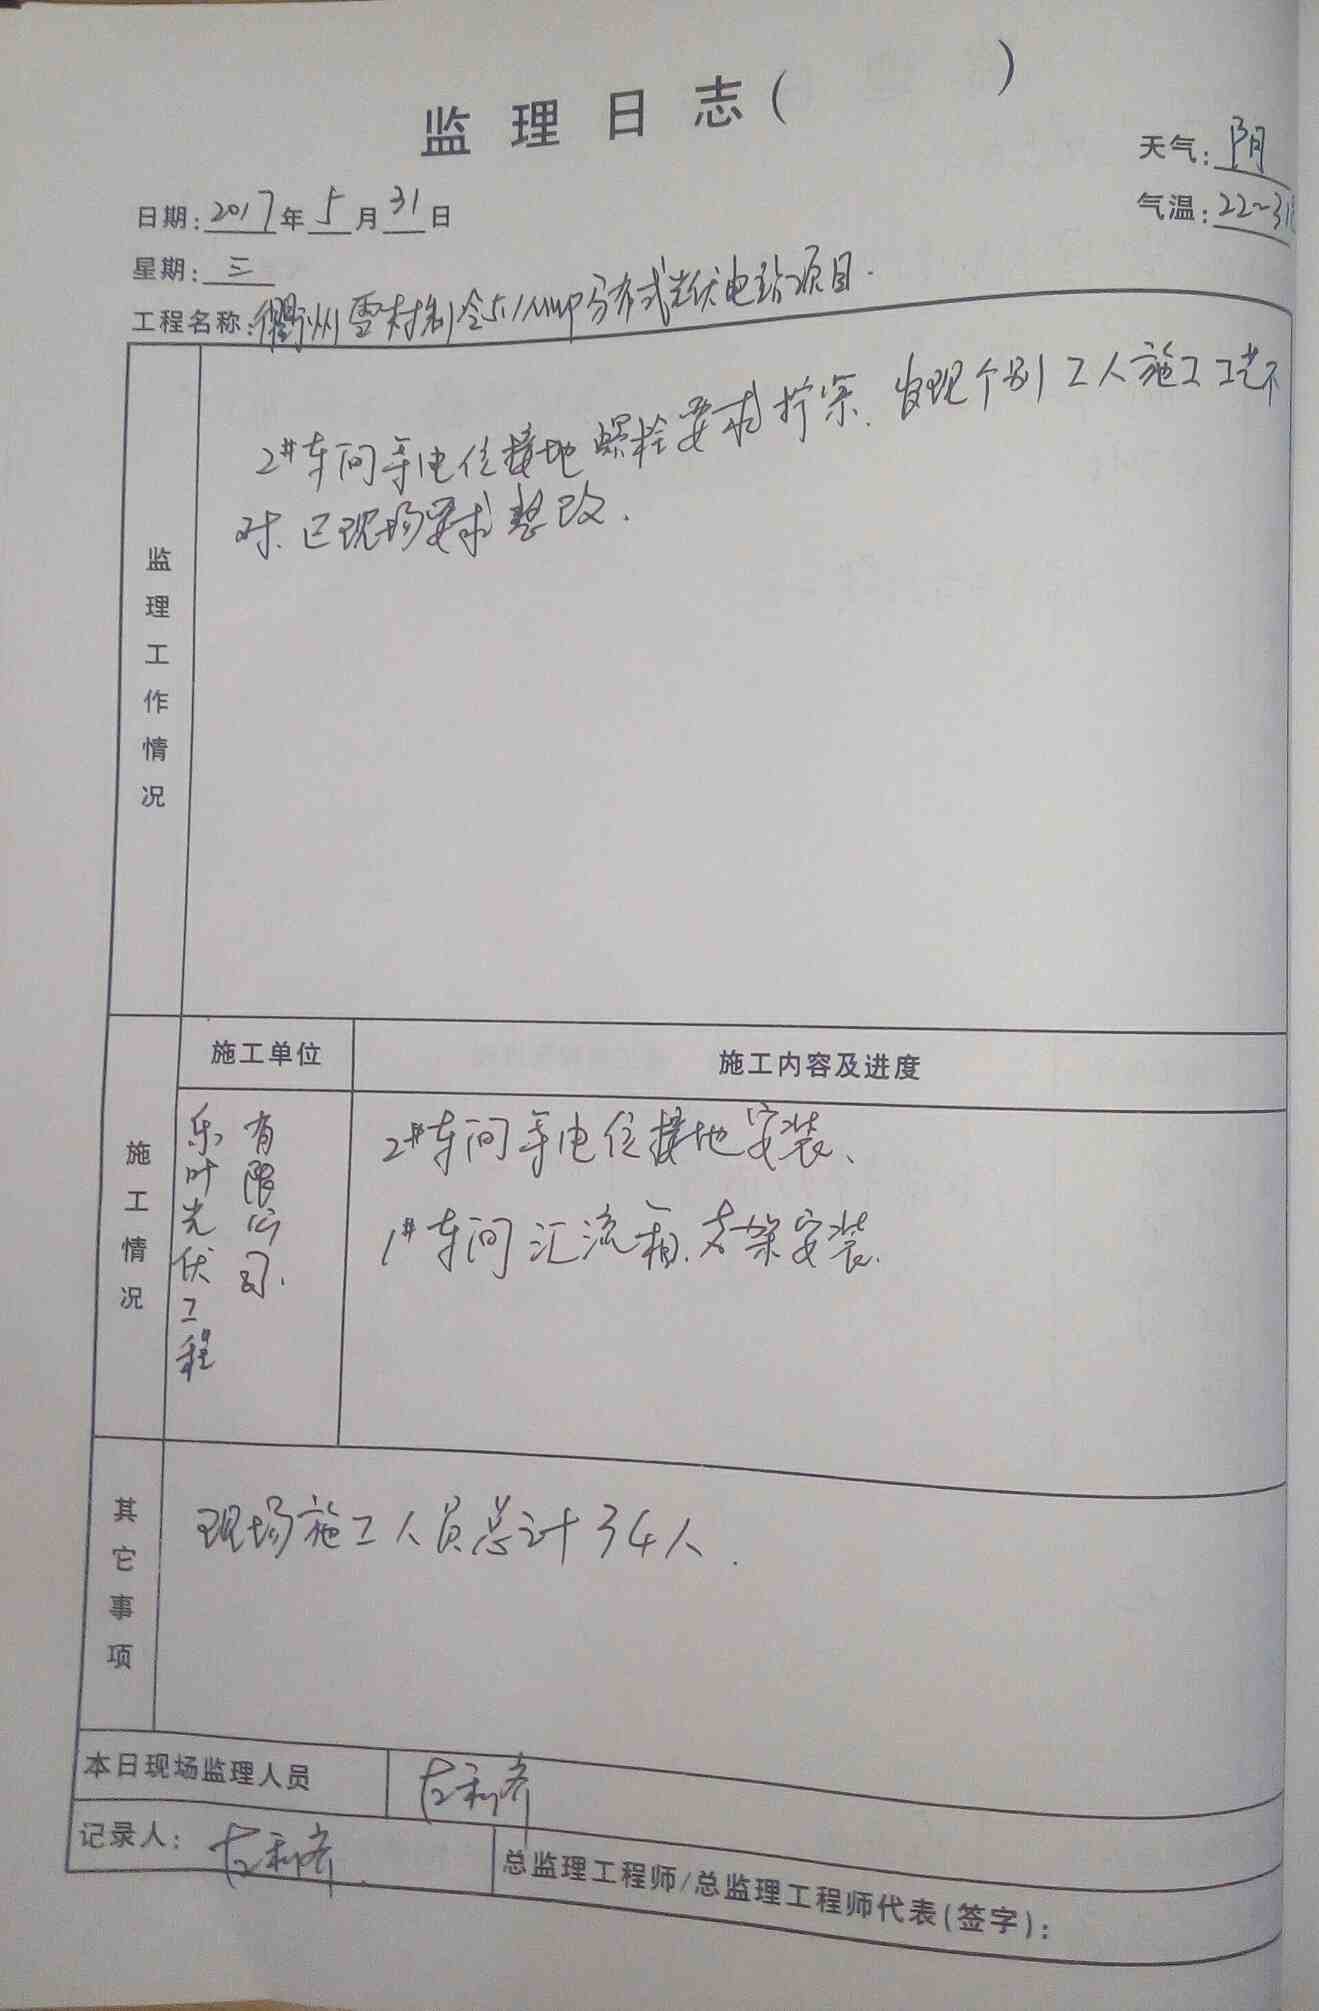 监理日志( )
天气:阴
日期:2017年5月31日
气温:22~31
星期:三
工程名称:衢州雪村制冷5.1MWP分布式光伏电站项目.
监理工作情况
2#车间等电位接地螺栓要求拧紧、发现个别工人施工工艺不
对、已现场要求整改.
施工单位
施工内容及进度
施工情况
乐叶光伏工程
有限公司.
2#车间等电位接地安装、
1#车间汇流箱、支架安装.
其它事项
现场施工人员总计34人.
本日现场监理人员
记录人:
总监理工程师/总监理工程师代表(签字):